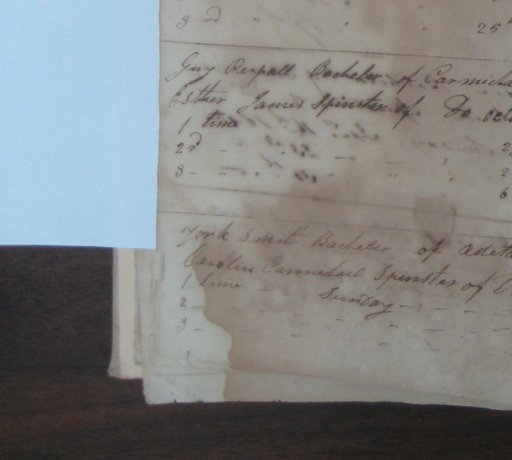 3 rd " " 25
Guy Bachelor of Carmicha
Esther James Spinster of. Do octo
1 time
2d - - - 2
3 - - - " " 2
6
York Smith Bachelor of
Carolin Carmichael Spinster of D
1 time
2 - Sunday - - -
3 - - - - -